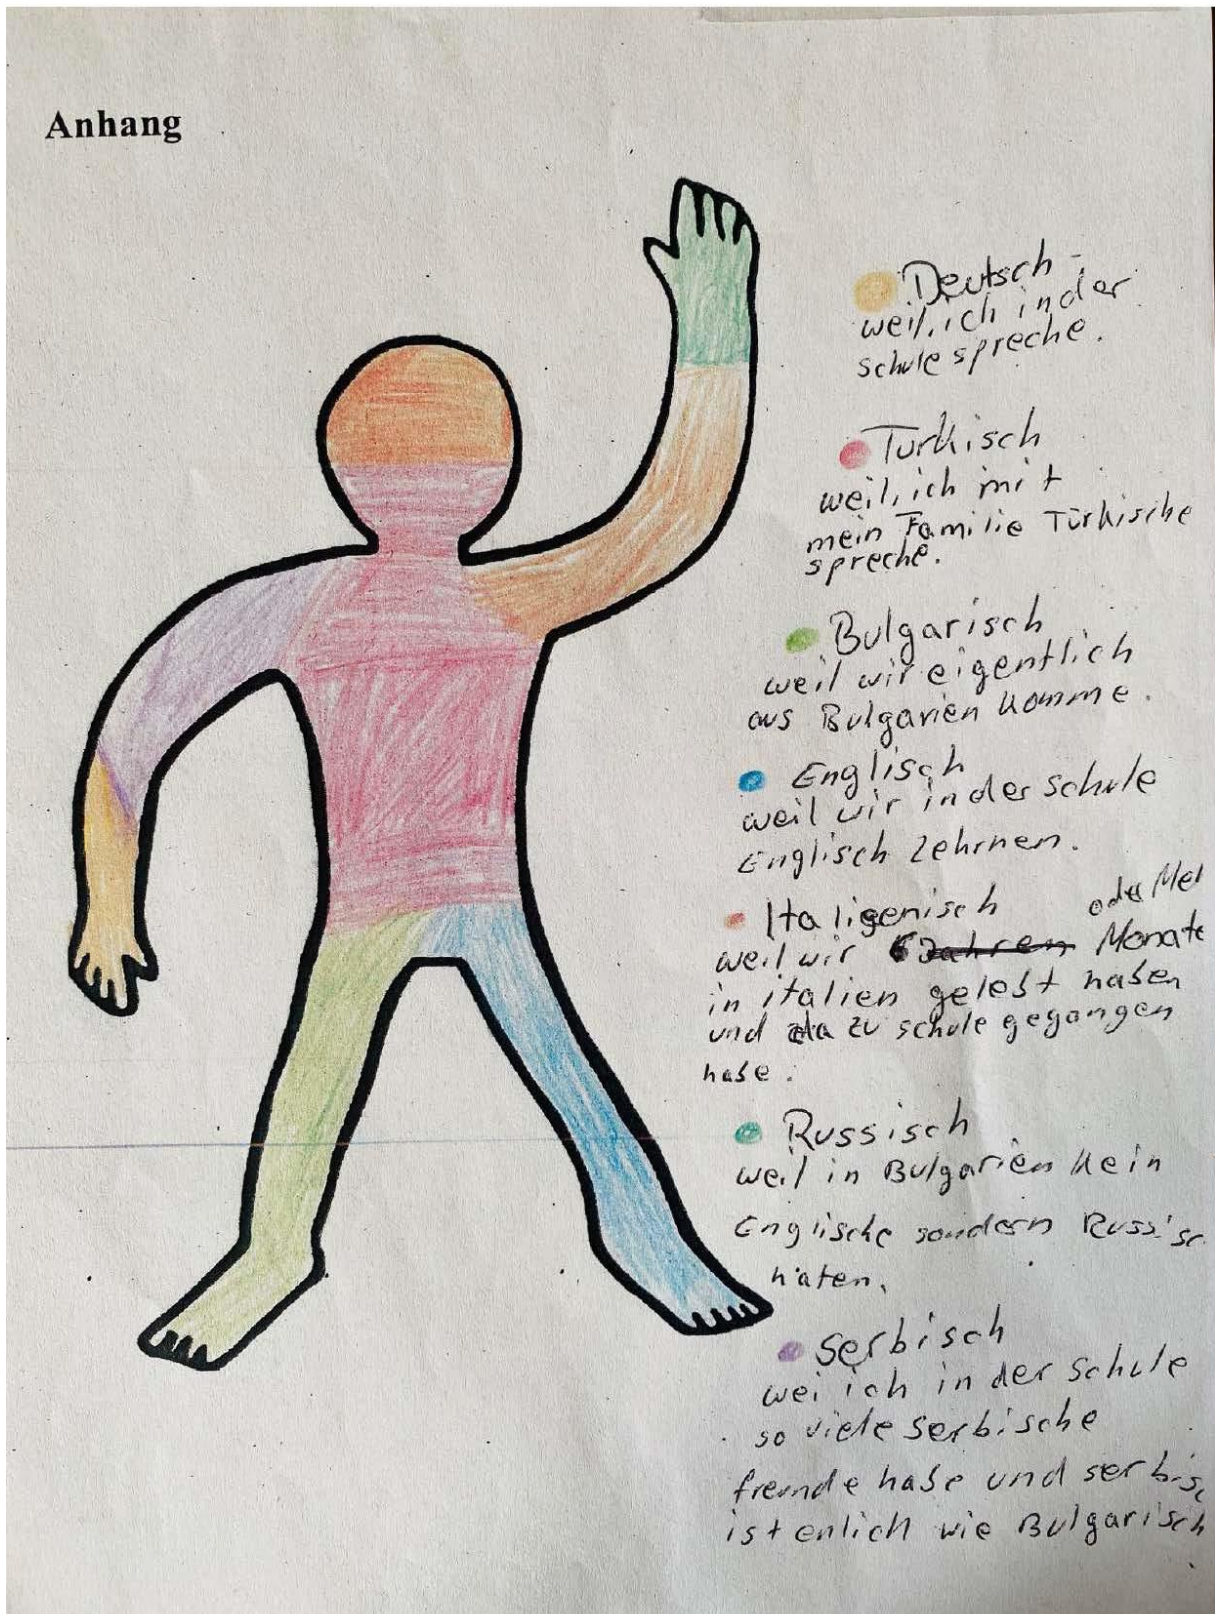 Anhang
Deutsch -
weil, ich in der
Schule spreche.
Turkisch
weil, ich mit
mein Familie Türkische
spreche.
Bulgarisch
weil wir eigentlich
aus Bulgarien komme.
Englisch
weil wir in der schule
Englisch Lehrnen.
Italigenisch oder Meh
weil wir 6 Jahren Monate
in italien gelebt haben
und da zu schule gegangen
habe.
Russisch
weil in Bulgarien kein
Englische sondern Russisc
haten.
Serbisch
wei ich in der schule
so viele serbische
freunde habe und serbisc
ist enlich wie Bulgarisch